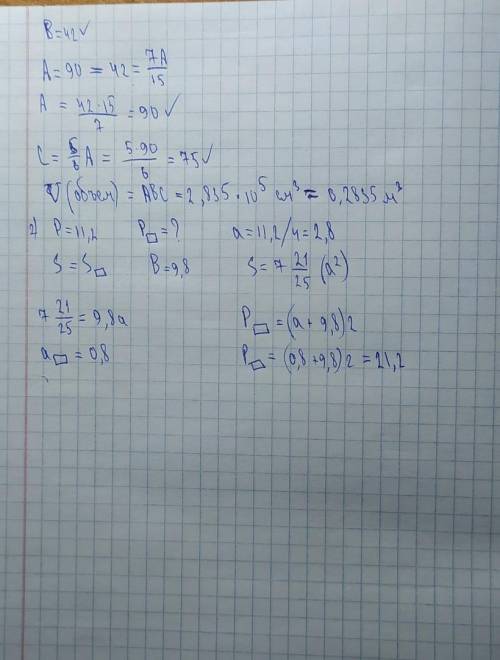 B=42✓
A=90 = 42 = 7A/15
A = 42·15/7 = 90 ✓
C = 5/6 A = 5·90/6 = 75 ✓
V (объем) = ABC = 2,835 · 10⁵ см³ = 0,2835 м³
2) P=11,2 P▭=? a=11,2/4=2,8
S=S▭ B=9,8 S=7 21/25 (a²)
7 21/25 = 9,8a P▭=(a+9,8)2
a▭=0,8 P▭=(0,8+9,8)2=21,2